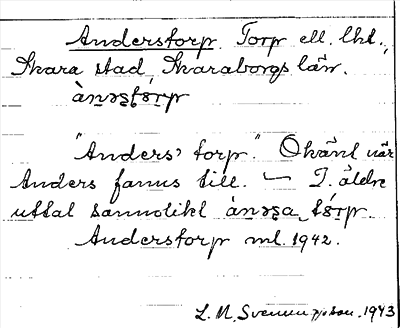 Anderstorp. Torp ell. lht.,
Skara stad, Skaraborgs län.
àn̲əʂt̲ɔ̀r̲p
"Anders' torp." Okänt när
Anders fanns till. — I äldre
uttal sannolikt àn̲əʂa tɔ́r̲p.
Anderstorp ml. 1942.
L. M. 1943